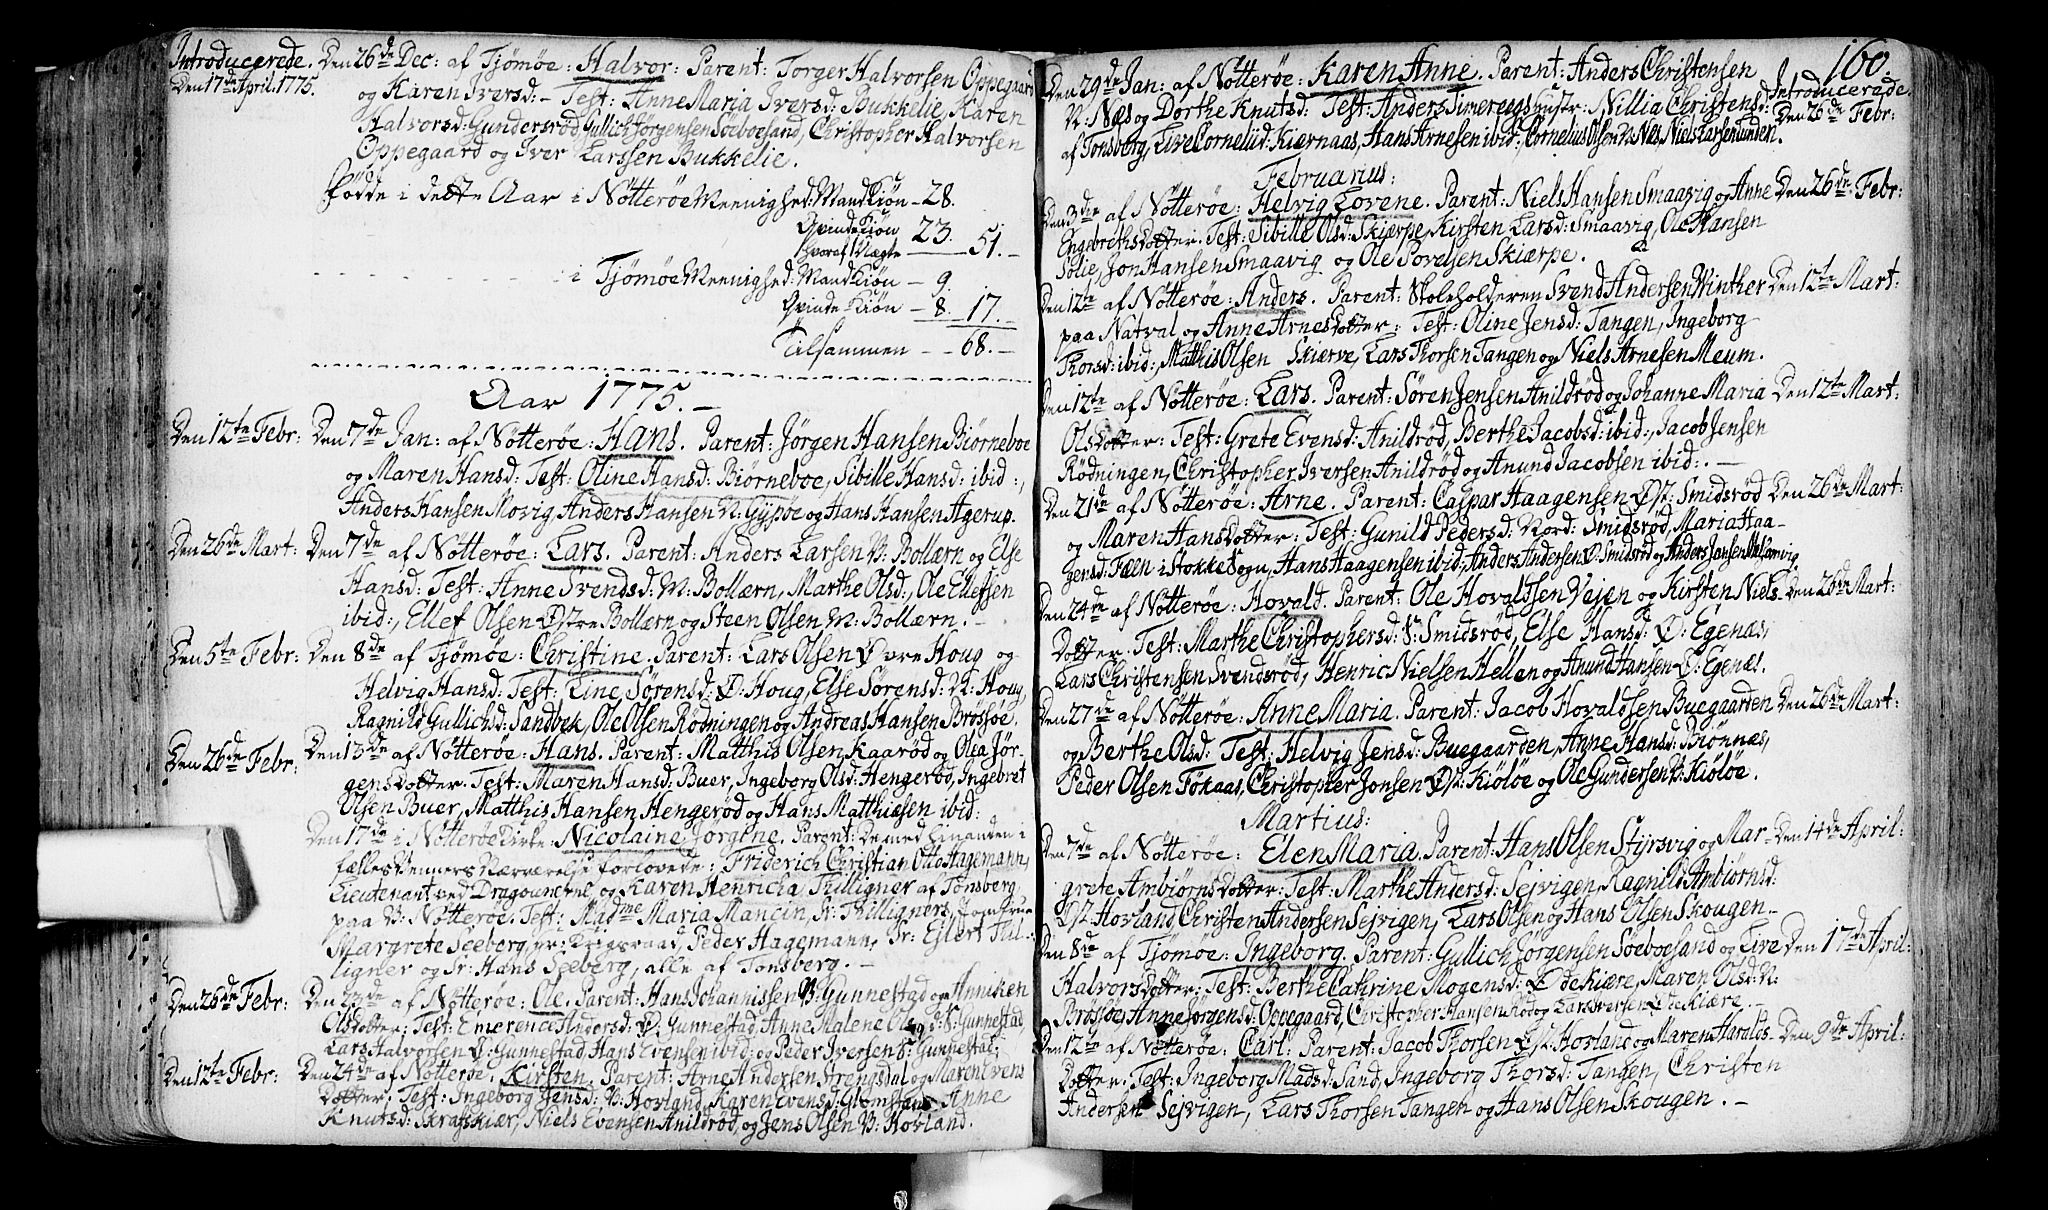 Introducerede. Den 26de Dec: af Tjömöe: Halvor: Parent: Torger Halvorsen Oppegaard
Den 17de April. 1775. og Karen Iversd:- Test: Anne Maria Iversd: Bukkelie, Karen
Halvorsd: Gundersröd, Gullich Jørgensen Söeboesand, Christopher Halvorsen
Oppegaard og Iver Larssen Bukkelie.
Födde i dette Aar i Nötteröe Meenighed: MandKiön - 28.
Qvinde Kiön 23. 51.
hvoraf 1 Uægte
i Tjömöe Meenighed: MandKiön - 9.
Qvinde-Kiön - 8. 17.
Tilsammen - - 68. -
Aar 1775. -
Den 12te Febr: Den 7de Jan: af Nötteröe: Hans. Parent: Jørgen Hansen Biørneboe
og Maren Hansd: Test: Oline Hansd: Biørneboe, Sibille Hansd: ibid:,
Anders Hansen Movig, Anders Hansen N: Gipöe og Hans Hansen Agerup.
Den 26de Mart: Den 7de af Nötteröe: Lars. Parent: Anders Larsen V: Bollærn og Else
Hansd: Test: Anne Svendsd: M: Bollærn, Marthe Olsd:, Ole Ellefsen
ibid:, Ellef Olsen Østre Bollærn og Steen Olsen M: Bollærn. -
Den 5te Febr: Den 8de af Tjömöe: Christine. Parent: Lars Olsen Øvre Houg og
Helvig Hansd: Test: Line Sørensd: Ø: Houg, Else Sørensd: N: Houg,
Ragnild Gullichsd: Sandbek, Ole Olsen Rödningen og Andreas Hansen Brösöe.
Den 26de Febr: Den 13de af Nötteröe: Hans. Parent: Matthis Olsen Kaaröd og Olea Jør-
gensDotter: Test: Maren Hansd: Buer, Ingeborg Olsd: Hengeröd, Ingebret
Olsen Buer, Matthis Hansen Hengeröd og Hans Matthisen ibid:
Den 17de i Nötteröe Kirke: Nicolaine Jørgine. Parent: De med hinanden i
fælles Venners Nærværelse forlovede: Friderich Christian Otto Hagemann,
Lieutenant ved Dragounerne og Karen Henricha Thilligner af Tönsberg
paa N: Nötteröe. Test: Madme Maria Mancin, Sr: Thilligners, Jomfrue
Margrete Seeberg, Hr: Krigsraad, Peder Hagemann, Sr: Ejlert Thil-
ligner og Sr: Hans Seeberg, alle af Tönsberg. -
Den 26de Febr: Den 23de af Nötteröe: Ole. Parent: Hans Johannissen V: Gunnestad og Anniken
Olsdotter: Test: Emerence Andersd: Ø: Gunnestad, Anne Malene Olsd: S: Gunnestad
Lars Halvorsen Ø: Gunnestad, Hans Evensen ibid: og Peder Iversen S: Gunnestad:
Den 12te Febr: Den 24de af Nötteröe: Kirsten. Parent: Arne Andersen Strengsdal og Maren Evens
Dotter: Test: Ingeborg Jensd: V: Hovland, Karen Evensd: Glomstene, Anne
Knutsd: Skrafskiær, Niels Evensen Anildröd, og Jens Olsen V: Hovland.
160.
Den 29de Jan: af Nötteröe: Karen Anne. Parent: Anders Christensen Introducerede.
N: Næs og Dorthe Knutsd: Test: Anders Hustr: Nillia Christensd: Den 26de Febr:
af Tönsberg, Live Cornelìid: Kiærnaas, Hans Arnesen ibid:, Cornelius Olsen N: Næs, Niels Larsen
Februarius:
Den 3die af Nötteröe: Helvig Lovene. Parent: Niels Hansen Smaavig og Anne Den 26de Febr:
EngebrethsDotter. Test: Sibille Olsd: Skiærpe, Kirsten Larsd: Smaavig, Ole Hansen
Solie, Jon Hansen Smaavig og Ole Povelsen Skiærpe.
Den 12te af Nötteröe: Anders. Parent: Skoleholderen Svend Andersen Winther Den 12te Mart:
paa Natval og Anne ArnesDotter: Test: Oline Jensd: Tangen, Ingeborg
Thorsd: ibid:, Matthis Olsen Skierve, Lars Thorsen Tangen og Niels Arnesen Meum.
Den 12te af Nötteröe: Lars. Parent: Søren Jensen Anildröd og Johanne Maria Den 12te Mart:
OlsDotter: Test: Grete Evensd: Anildröd, Berthe Jacobsd: ibid:, Jacob Jensen
Rödningen, Christopher Iversen Anildröd og Anund Jacobsen ibid:. -
Den 21de af Nötteröe: Arne. Parent: Caspar Haagensen Øst: Smidsröd Den 26de Mart:
og Maren HansDotter: Test: Gunild Pedersd: Nord: Smidsröd, Maria Haa-
gensd: Fæen i Stokke Sogn, Hans Haagensen ibid:, Anders Andersen Ø: Smidsröd og Anders Jansen
Den 24de af Nötteröe: Hovald. Parent: Ole Hovaldsen Vejen og Kirsten Niels- Den 26de Mart:
Dotter: Test: Marthe Christophersd: Sr: Smidsröd, Else Hansd: Ø: Egenæs,
Lars Christensen Svendsröd, Henric Nielsen Hellen og Anund Hansen Ø: Egenæs.
Den 27de af Nötteröe: Anne Maria. Parent: Jacob Hovaldsen Buegaarden Den 26de Mart:
og Berthe Olsd: Test: Helvig Jensd: Buegaarden, Anne Hansd: Biönnæs,
Peder Olsen Fökaas, Christopher Jonsen Øst: Kiölöe og Ole Gundersen V: Kiölöe.
Martius:
Den 7de af Nötteröe: Elen Maria. Parent: Hans Olsen Stjrsvig og Mar- Den 14de April:
grete AmbiörnsDotter: Test: Marthe Andersd: Sejvigen, Ragnild Ambiörnsd:
Øst: Hovland, Christen Andersen Sejvigen, Lars Olsen og Hans Olsen Skougen -
Den 8de af Tjömöe: Ingeborg. Parent: Gullich Jørgensen Söeboesand og Live Den 17de April:
HalvorsDotter: Test: Berthe Cathrine Mogensd: Ødekiære, Maren Olsd: N:
Brösöe, Anne Jörgensd: Oppegaard, Christopher Hansen Röd og Lars Iversen Ødekiære. -
Den 12te af Nötteröe: Carl: Parent: Jacob Thorsen Øst: Hovland og Maren Haralds- Den 9de April:
Dotter: Test: Ingeborg Madsd: Sand, Ingeborg Thorsd: Tangen, Christen
Andersen Sejvigen, Lars Thorsen Tangen og Hans Olsen Skougen. -